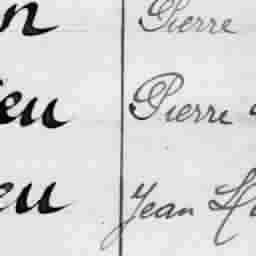 n Pierre
ieu Pierre
eu Jean